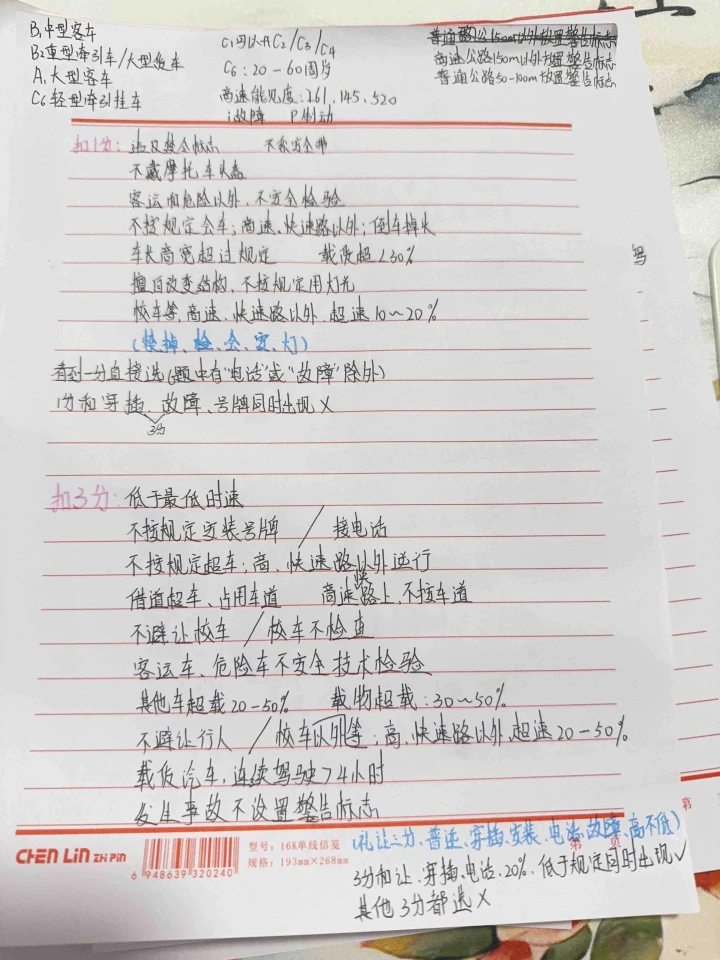 B₁中型客车
B₂重型牵引车/大型货车
A₁大型客车
C₆轻型牵引挂车
C₁可以开C₂/C₃/C₄
C₆：20-60周岁
高速能见度：261、145、520
i故障 P制动
高速公路150m以外放置警告标志
普通公路50-100m放置警告标志
扣1分：
不系安全带
不戴摩托车头盔
客运和危险以外，不安全检验
不按规定会车；高速、快速路以外；倒车掉头
车长高宽超过规定 载货超<30%
擅自改变结构、不按规定用灯光
校车等，高速、快速路以外，超速10～20%
检、会、灯)
看到一分直接选(题中有"电话"或"故障"除外)
1分和穿插、故障、号牌同时出现X
3分
驾
扣3分：低于最低时速
不按规定安装号牌 / 接电话
不按规定超车；高、快速路以外逆行
借道超车、占用车道 高速快路上，不按车道
不避让校车 / 校车不检查
客运车、危险车不安全技术检验
其他车超载20-50% 载物超载：30～50%
不避让行人 / 校车以外等；高、快速路以外，超速20-50%
载货汽车，连续驾驶>4小时
发生事故不设置警告标志
CHEN LIN ZHI PIN
6 948639 320240
型号：16K单线信笺
规格：193mm×268mm
第 页
第
(礼让三分、普逆、穿插、安装、电话、故障、高不低)
3分和让、穿插、电话、20%、低于规定同时出现✓
其他3分都选X